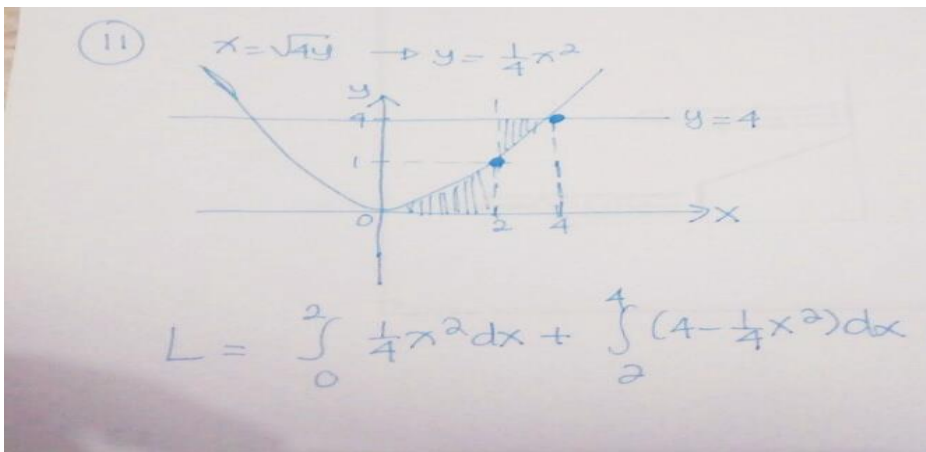 11 x = √4y → y = 1/4 x²
y
4 y = 4
1
0 2 4 x
L = ∫₀² 1/4 x² dx + ∫₂⁴ (4 - 1/4 x²) dx